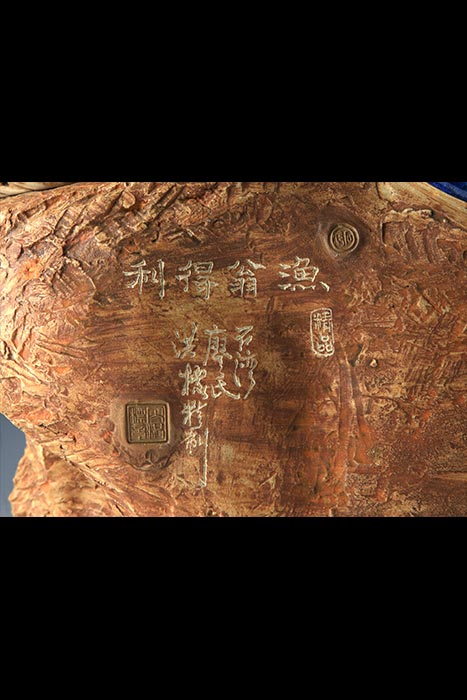 漁翁得利
精品
石湾
廖氏
洪標 制